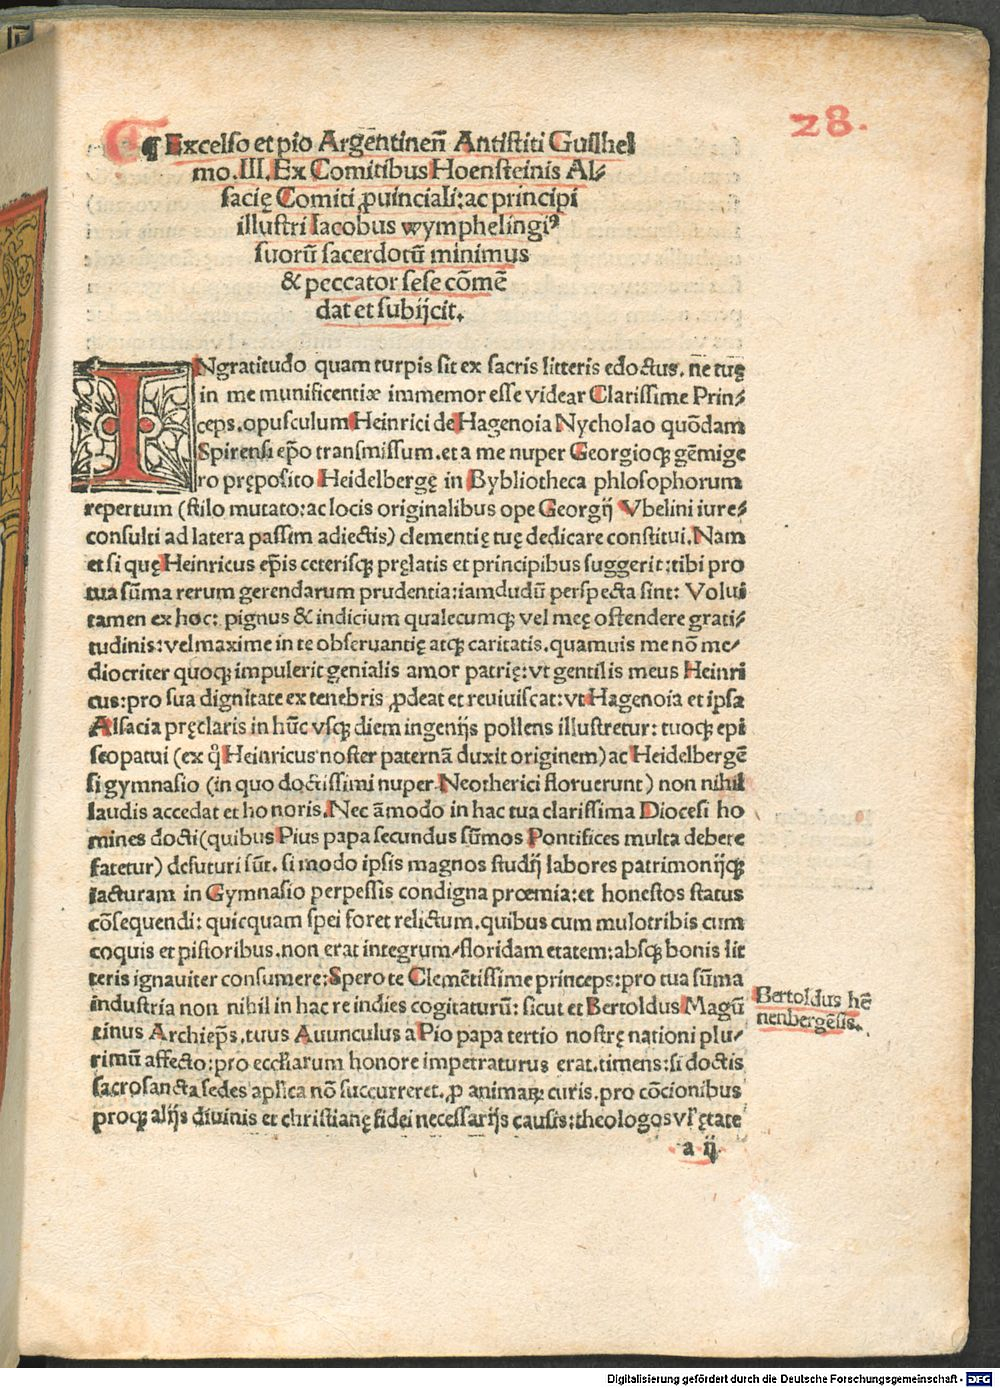 28.
¶ Excelso et pio Argētinen̄ Antistiti Guilhel
mo. III. Ex Comitibus Hoensteinis Al⸗
sacię Comiti ꝓuinciali: ac principi
illustri Iacobus wymphelingiꝰ
suorū sacerdotū minimus
& peccator sese cōmē
dat et subijcit.
INgratitudo quam turpis sit ex sacris litteris edoctus. ne tuę
in me munificentiæ immemor esse videar Clarissime Prin⸗
ceps. opusculum Heinrici de Hagenoia Nycholao quōdam
Spirensi ep̄o transmissum. et a me nuper Georgioqꝫ gēmige
ro pręposito Heidelbergę in Bybliotheca phlosophorum
repertum (stilo mutato: ac locis originalibus ope Georgij Vbelini iure⸗
consulti ad latera passim adiectis) clementię tuę dedicare constitui. Nam
et si quę Heinricus ep̄is ceterisqꝫ pręlatis et principibus suggerit: tibi pro
tua sūma rerum gerendarum prudentia: iamdudū perspecta sint: Volui
tamen ex hoc: pignus & indicium qualecumqꝫ vel meę ostendere grati⸗
tudinis: vel maxime in te obseruantię atqꝫ caritatis. quamuis me nō me⸗
diocriter quoqꝫ impulerit genialis amor patrię: vt gentilis meus Heinri
cus: pro sua dignitate ex tenebris ꝓdeat et reuiuiscat: vt Hagenoia et ipsa
Alsacia pręclaris in hūc vsqꝫ diem ingenijs pollens illustretur: tuoqꝫ epi
scopatui (ex q̊ Heinricus noster paternā duxit originem) ac Heidelbergē
si gymnasio (in quo doctissimi nuper Neotherici floruerunt) non nihil
laudis accedat et honoris. Nec āmodo in hac tua clarissima Diocesi ho
mines docti (quibus Pius papa secundus sūmos Pontifices multa debere
fatetur) defuturi sūt. si modo ipsis magnos studij labores patrimonijqꝫ
iacturam in Gymnasio perpessis condigna prœmia: et honestos status
cōsequendi: quicquam spei foret relictum. quibus cum mulotribis cum
coquis et pistoribus. non erat integrum/ floridam etatem: absqꝫ bonis lit
teris ignauiter consumere: Spero te Clemētissime princeps: pro tua sūma
industria non nihil in hac re indies cogitaturū: sicut et Bertoldus Magū
tinus Archiep̄s. tuus Auunculus a Pio papa tertio nostrę nationi plu⸗
rimū affecto: pro eccl̄iarum honore impetraturus erat. timens: si doctis
sacrosancta sedes ap̄lica nō succurreret. ꝓ animaꝝ curis. pro cōcionibus
proqꝫ alijs diuinis et christianę fidei necessarijs causis: theologos vl̄ ętate
Bertoldus hē
nenbergēsis.
a ij
Digitalisierung gefördert durch die Deutsche Forschungsgemeinschaft - DFG